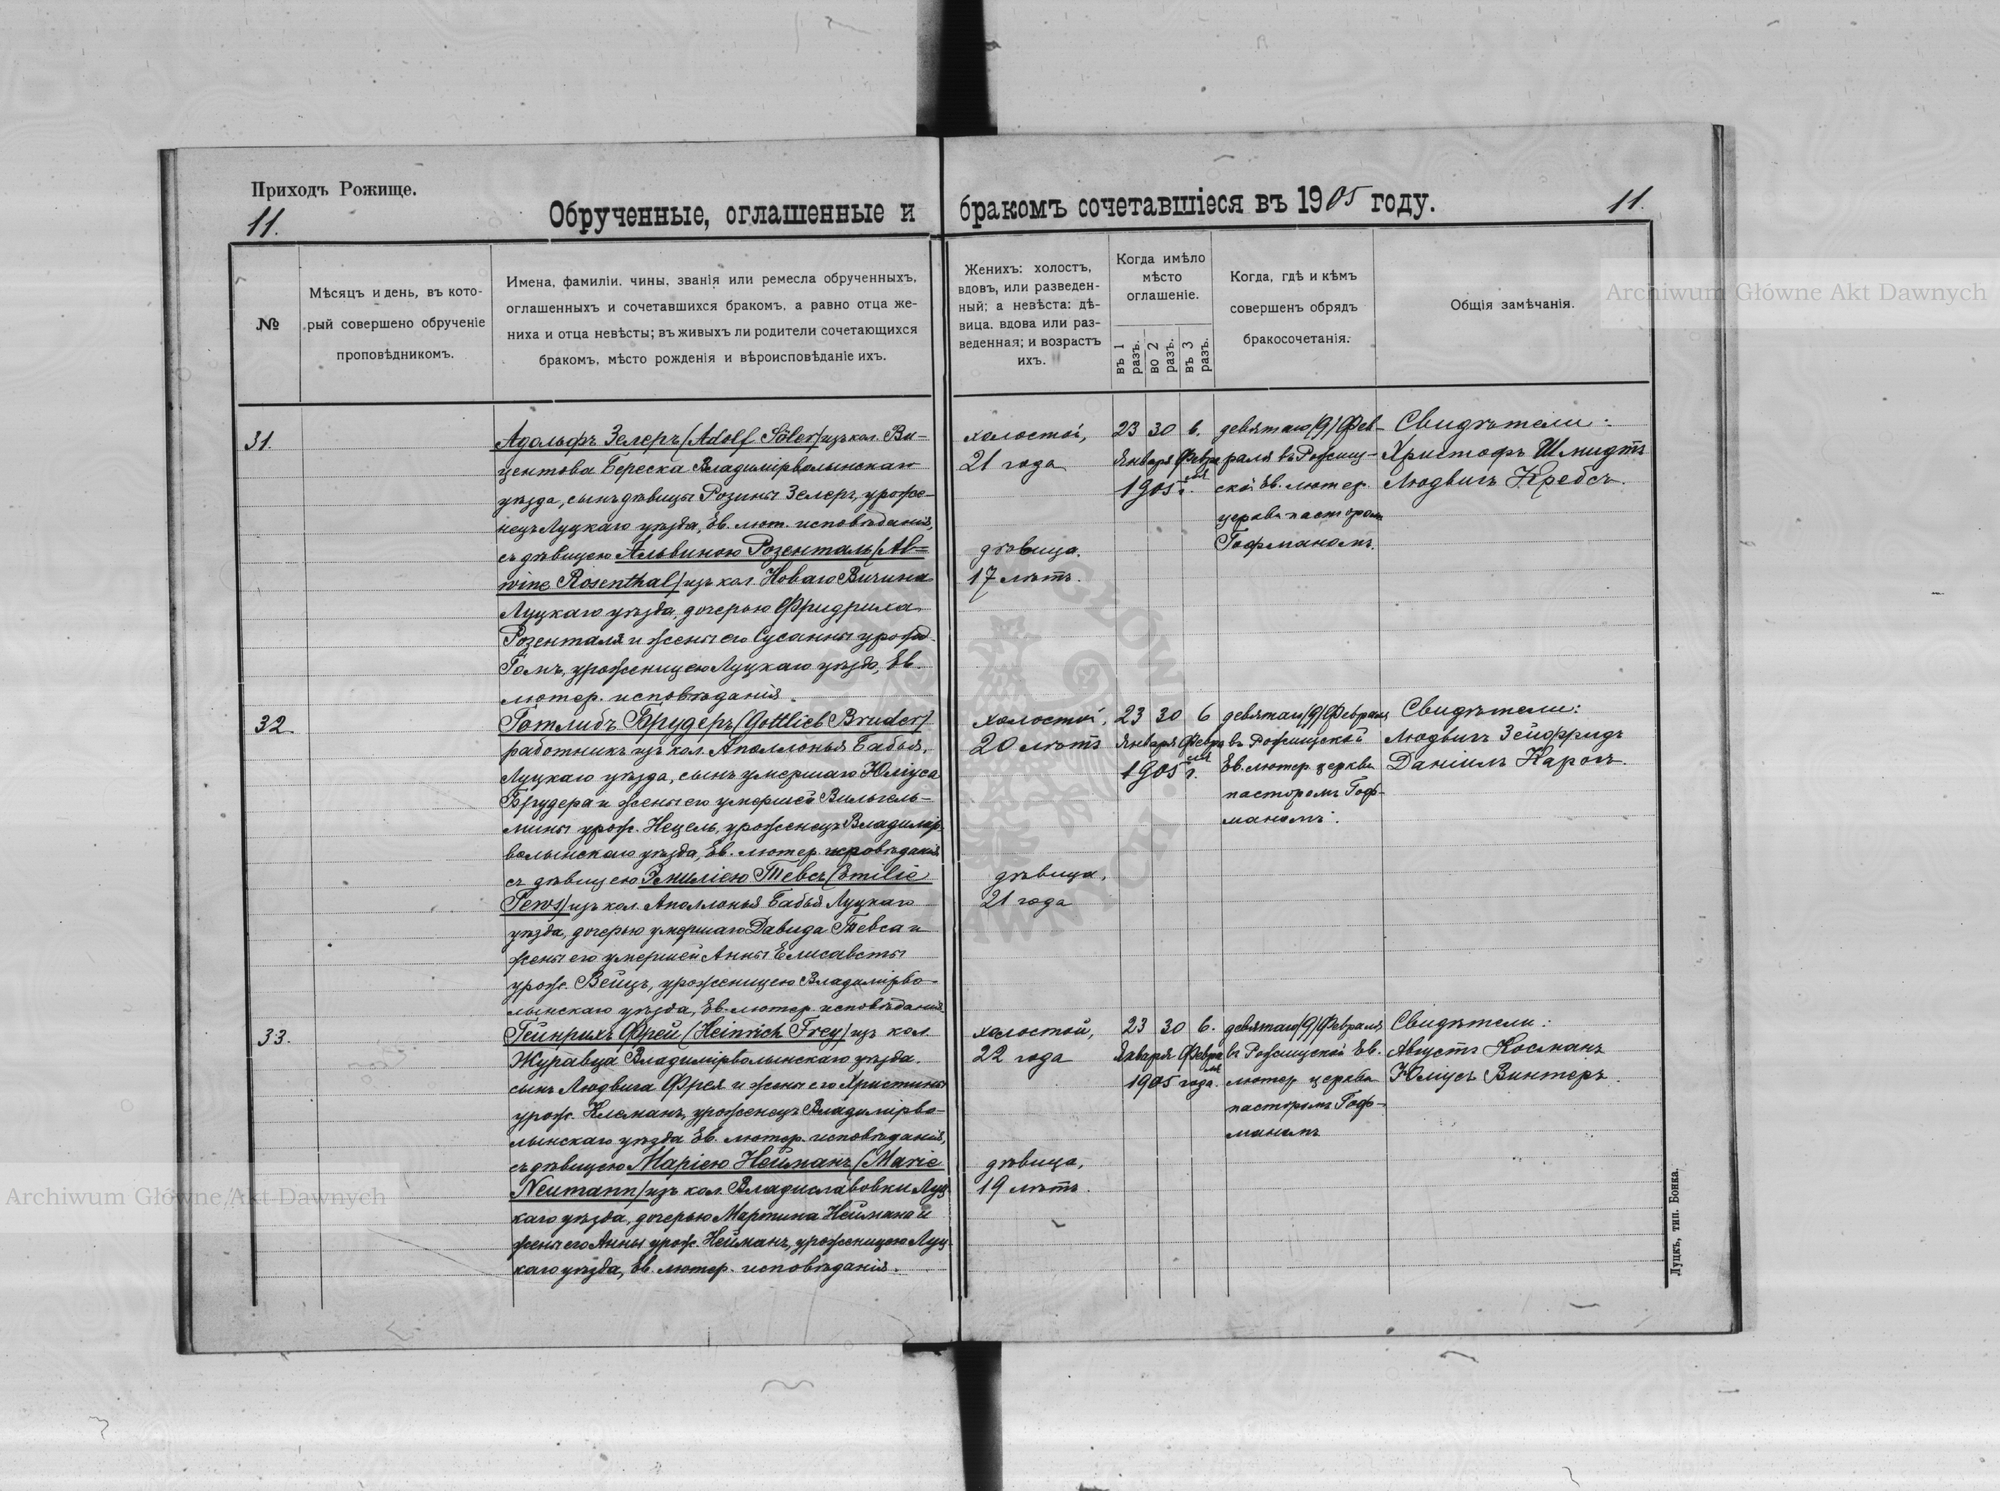 Приходъ Рожище.
11.
Обрученные, оглашенные и бракомъ сочетавшіеся въ 1905 году.
11.
№
Мѣсяцъ и день, въ кото-
рый совершено обрученіе
проповѣдникомъ.
Имена, фамиліи, чины, званія или ремесла обрученныхъ,
оглашенныхъ и сочетавшихся бракомъ, а равно отца же-
ниха и отца невѣсты; въ живыхъ ли родители сочетающихся
бракомъ, мѣсто рожденія и вѣроисповѣданіе ихъ.
Женихъ: холостъ,
вдовъ, или разведен-
ный; а невѣста: дѣ-
вица, вдова или раз-
веденная; и возрастъ
ихъ.
Когда имѣло
мѣсто
оглашеніе.
въ 1 разъ.
во 2 разъ.
въ 3 разъ.
Когда, гдѣ и кѣмъ
совершенъ обрядъ
бракосочетанія.
Общія замѣчанія.
31.
Адольфъ Зелеръ (Adolf Söler) изъ кол. Ви-
центова Береска Владимірволынскаго
уѣзда, сынъ дѣвицы Розины Зелеръ, уроже-
нецъ Луцкаго уѣзда, Ев. лют. исповѣданія,
съ дѣвицею Альвиною Розенталь (Al=
wine Rosenthal) изъ кол. Новаго Вичина
Луцкаго уѣзда, дочерью Фридриха
Розенталя и жены его Сусанны урожд.
Гомъ, уроженицею Луцкаго уѣзда, Ев.
лютер. исповѣданія.
холостой,
21 года
дѣвица.
17 лѣтъ.
23 30 6.
Января Февра
ля
1905 г.
девятаго (9) Фев-
раля въ Рожищ-
ской Ев. лютер.
церкви пасторомъ
Гофманомъ.
Свидѣтели:
Христофъ Шмидтъ
Людвигъ Кребсъ.
32.
Готлибъ Брудеръ (Gottlieb Bruder)
работникъ изъ кол. Аполлонья Бабья,
Луцкаго уѣзда, сынъ умершаго Юліуса
Брудера и жены его умершей Вильгель-
мины урож. Нецель, уроженецъ Владимір-
волынскаго уѣзда, Ев. лютер. исповѣданія,
съ дѣвицею Эмиліею Тевсъ (Emilie
Tews) изъ кол. Аполлонья Бабья Луцкаго
уѣзда, дочерью умершаго Давида Тевса и
жены его умершей Анны Елисаветы
урож. Вейцъ, уроженицею Владимірво-
лынскаго уѣзда, Ев. лютер. исповѣданія
холостой,
20 лѣтъ
дѣвица,
21 года
23 30 6
Января Февра
ля
1905 г.
девятаго (9) Февраля
въ Рожищской
Ев. лютер. церкви
пасторомъ Гоф-
маномъ.
Свидѣтели:
Людвигъ Зейфридъ
Даніилъ Кароъ.
33.
Гейнрихъ Фрей (Heinrich Frey) изъ кол.
Журавца Владимірволынскаго уѣзда.
сынъ Людвига Фрея и жены его Христины
урож. Клеманъ, уроженецъ Владимірво-
лынскаго уѣзда Ев. лютер. исповѣданія,
съ дѣвицею Маріею Нейманъ (Marie
Neumann) изъ кол. Владиславовки Луц-
каго уѣзда, дочерью Мартина Неймана и
жены его Анны урож. Нейманъ, уроженицею Луц-
каго уѣзда, Ев. лютер. исповѣданія.
холостой,
22 года
дѣвица,
19 лѣтъ.
23 30 6.
Января Февра
ля
1905 года.
девятаго (9) Февраля
въ Рожищской Ев.
лютер. церкви
пасторомъ Гоф-
маномъ
Свидѣтели:
Августъ Косманъ
Юліусъ Винтеръ.
Луцкъ, тип. Бонка.
Archiwum Główne Akt Dawnych
Archiwum Główne Akt Dawnych